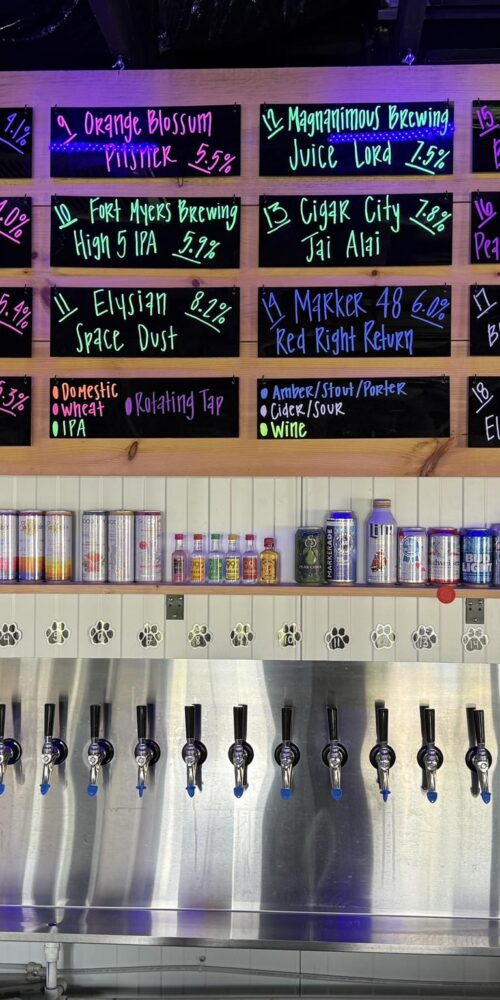 4.1%
9 Orange Blossom
Pilsner 5.5%
12 Magnanimous Brewing
Juice Lord 7.5%
15
10 Fort Myers Brewing
High 5 IPA 5.9%
13 Cigar City 7.8%
Jai Alai
16
Pea
5.4%
11 Elysian 8.2%
Space Dust
14 Marker 48 6.0%
Red Right Return
5.3%
Domestic
Wheat
IPA
Rotating Tap
Amber/Stout/Porter
Cider/Sour
Wine
18
El
MARKERADE
Lite
BUD
LIGHT